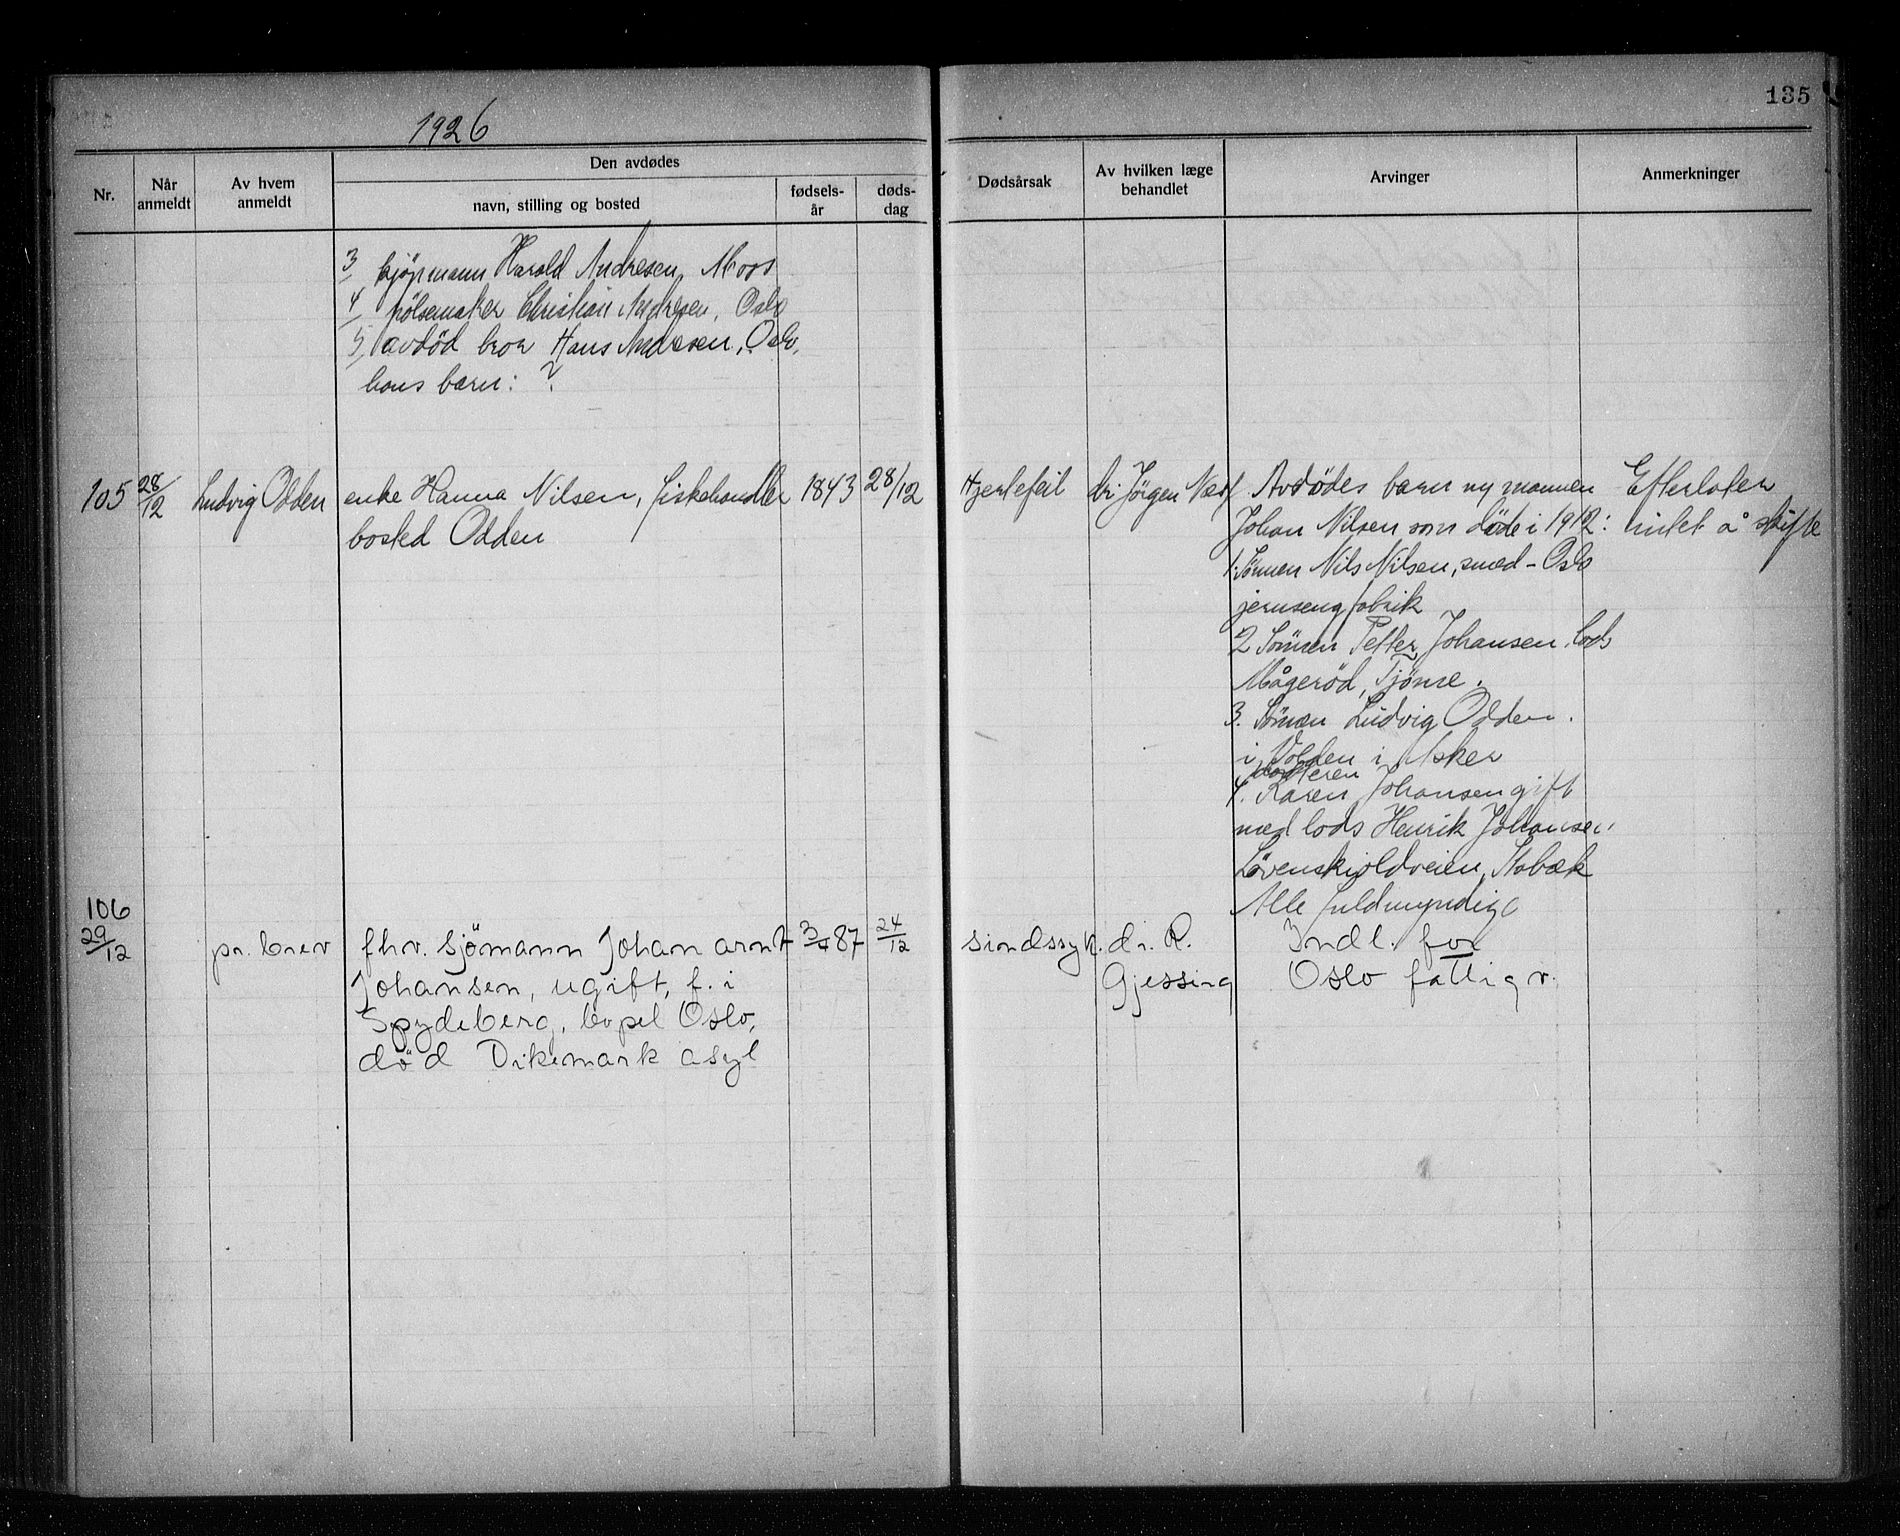 1926
135
Nr.
Når anmeldt
Av hvem anmeldt
Den avdødes
navn, stilling og bosted
fødsels-år
døds-dag
Dødsårsak
Av hvilken læge behandlet
Arvinger
Anmerkninger
3 kjøpmann Harald Andresen, Moss
4 pølsemaker Christian Andresen, Oslo
5, avdöd bror Hans Andresen, Oslo,
hans barn: ?
105 28/12 Ludvig Odden
enke Hanna Nilsen, fiskehandler 1843 28/12
bosted Odden
Hjertefeil dr. Jörgen Næss
Avdödes barn
mannen
Johan Nilsen som döde i 1912:
1. Sönnen Nils Nilsen, smed - Oslo
jernseng fabrik
2 Sönnen Petter Johansen, lods
Mågeröd, Tjöme.
3. Sönnen Ludvig Odden.
i Volden i Asker
datteren
4. Karen Johansen gift
med lods Henrik Johansen,
Lövenskioldveien, Stabæk
Alle fuldmyndige
Efterlater
intet å skifte
106
29/12 pr. brev
fhv. sjömann Johan arnt 3/4 87 24/12
Johansen, ugift, f. i
Spydeberg, bopel Oslo,
död Dikemark asyl
sindssyk. dr. R.
Gjessing
Indl. for
Oslo fattigv.